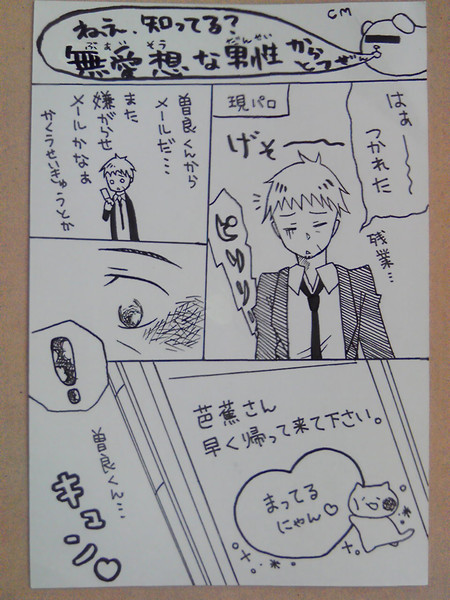 CM
ねぇ、知ってる?
無愛想な男性から
とつぜん
はぁ〜〜
つかれた
残業…
現パロ
げそ〜
曽良くんから
メールだ…
また
嫌がらせ
メールかなぁ
かくうせいきゅうとか
芭蕉さん
早く帰って来て下さい。
まってる
にゃん♡
曽良くん…
キュン♡